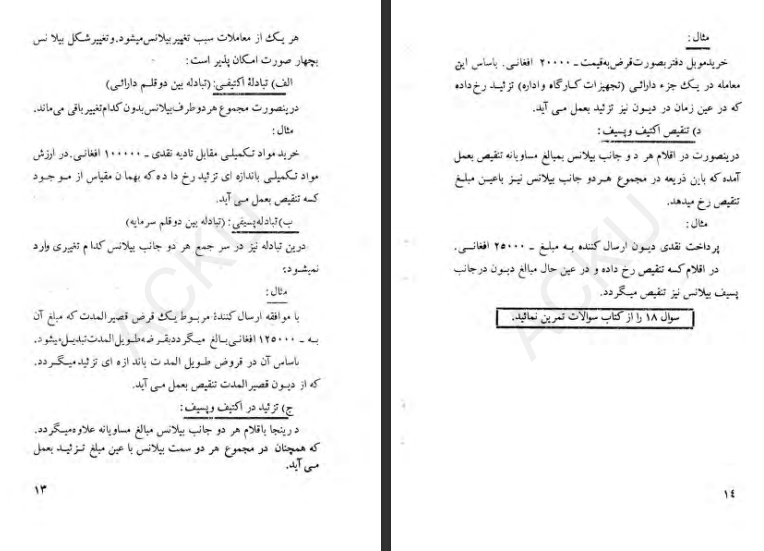 هر یک از معاملات سبب تغییر بیلانس میشود. و تغییر شکل بیلانس
بچهار صورت امکان پذیر است:
الف) تبادلهٔ اکتیفی: (تبادله بین دو قلم دارائی)
درینصورت مجموع هر دو طرف بیلانس بدون کدام تغییر باقی می ماند.
مثال:
خرید مواد تکمیلی مقابل تادیه نقدی ـ ۱۰۰۰۰۰ افغانی. در ارزش
مواد تکمیلی باندازه ای تزئید رخ داده که بهمان مقیاس از موجود
کسه تنقیص بعمل می آید.
ب) تبادله پسیفی: (تبادله بین دو قلم سرمایه)
درین تبادله نیز در سر جمع هر دو جانب بیلانس کدام تغییری وارد
نمیشود؛
مثال:
با موافقه ارسال کنندهٔ مربوط یک قرض قصیرالمدت که مبلغ آن
به ـ ۱۲۵۰۰۰ افغانی بالغ میگردد بقرضه طویل المدت تبدیل میشود.
باساس آن در قروض طویل المدت باندازه ای تزئید میگردد.
که از دیون قصیرالمدت تنقیص بعمل می آید.
ج) تزئید در اکتیف و پسیف:
درینجا باقلام هر دو جانب بیلانس مبالغ مساویانه علاوه میگردد.
که همچنان در مجموع هر دو سمت بیلانس با عین مبلغ تزئید بعمل
می آید.
۱۳
مثال:
خرید موبل دفتر بصورت قرض به قیمت ـ ۲۰۰۰۰ افغانی. باساس این
معامله در یک جزء دارائی (تجهیزات کارگاه و اداره) تزئید رخ داده
که در عین زمان در دیون نیز تزئید بعمل می آید.
د) تنقیص اکتیف و پسیف:
درینصورت در اقلام هر دو جانب بیلانس بمبالغ مساویانه تنقیص بعمل
آمده که باین ذریعه در مجموع هر دو جانب بیلانس نیز باعین مبلغ
تنقیص رخ میدهد.
مثال:
پرداخت نقدی دیون ارسال کننده به مبلغ ـ ۲۵۰۰۰ افغانی.
در اقلام کسه تنقیص رخ داده و در عین حال مبالغ دیون در جانب
پسیف بیلانس نیز تنقیص میگردد.
سوال ۱۸ را از کتاب سوالات تمرین نمائید.
۱٤
ACKU
ACKU